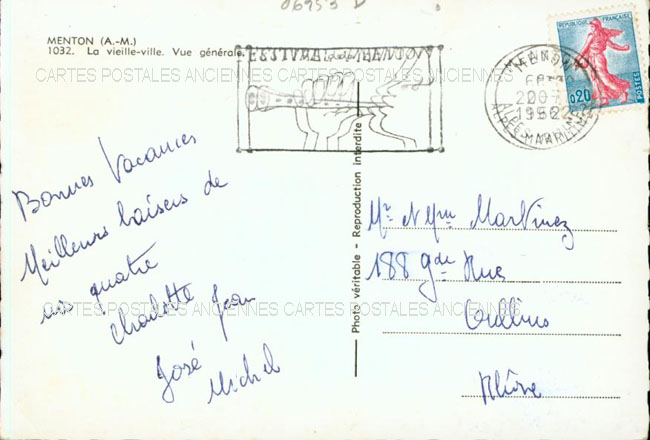 06953 D
MENTON (A.-M.)
1032. La vieille-ville. Vue générale.
CARTES POSTALES ANCIENNES CARTES POSTALES ANCIENNES
RÉPUBLIQUE FRANÇAISE
0,20
POSTES
MENTON
ALPES MARITIMES
Bonnes Vacances
Meilleurs baisers de
quatre
Charlotte Jean
José
Michel
Photo véritable - Reproduction interdite
Mr et Mme Martinez
188 gde Rue
Oullins
Rhône
CARTES POSTALES ANCIENNES CARTES POSTALES ANCIENNES